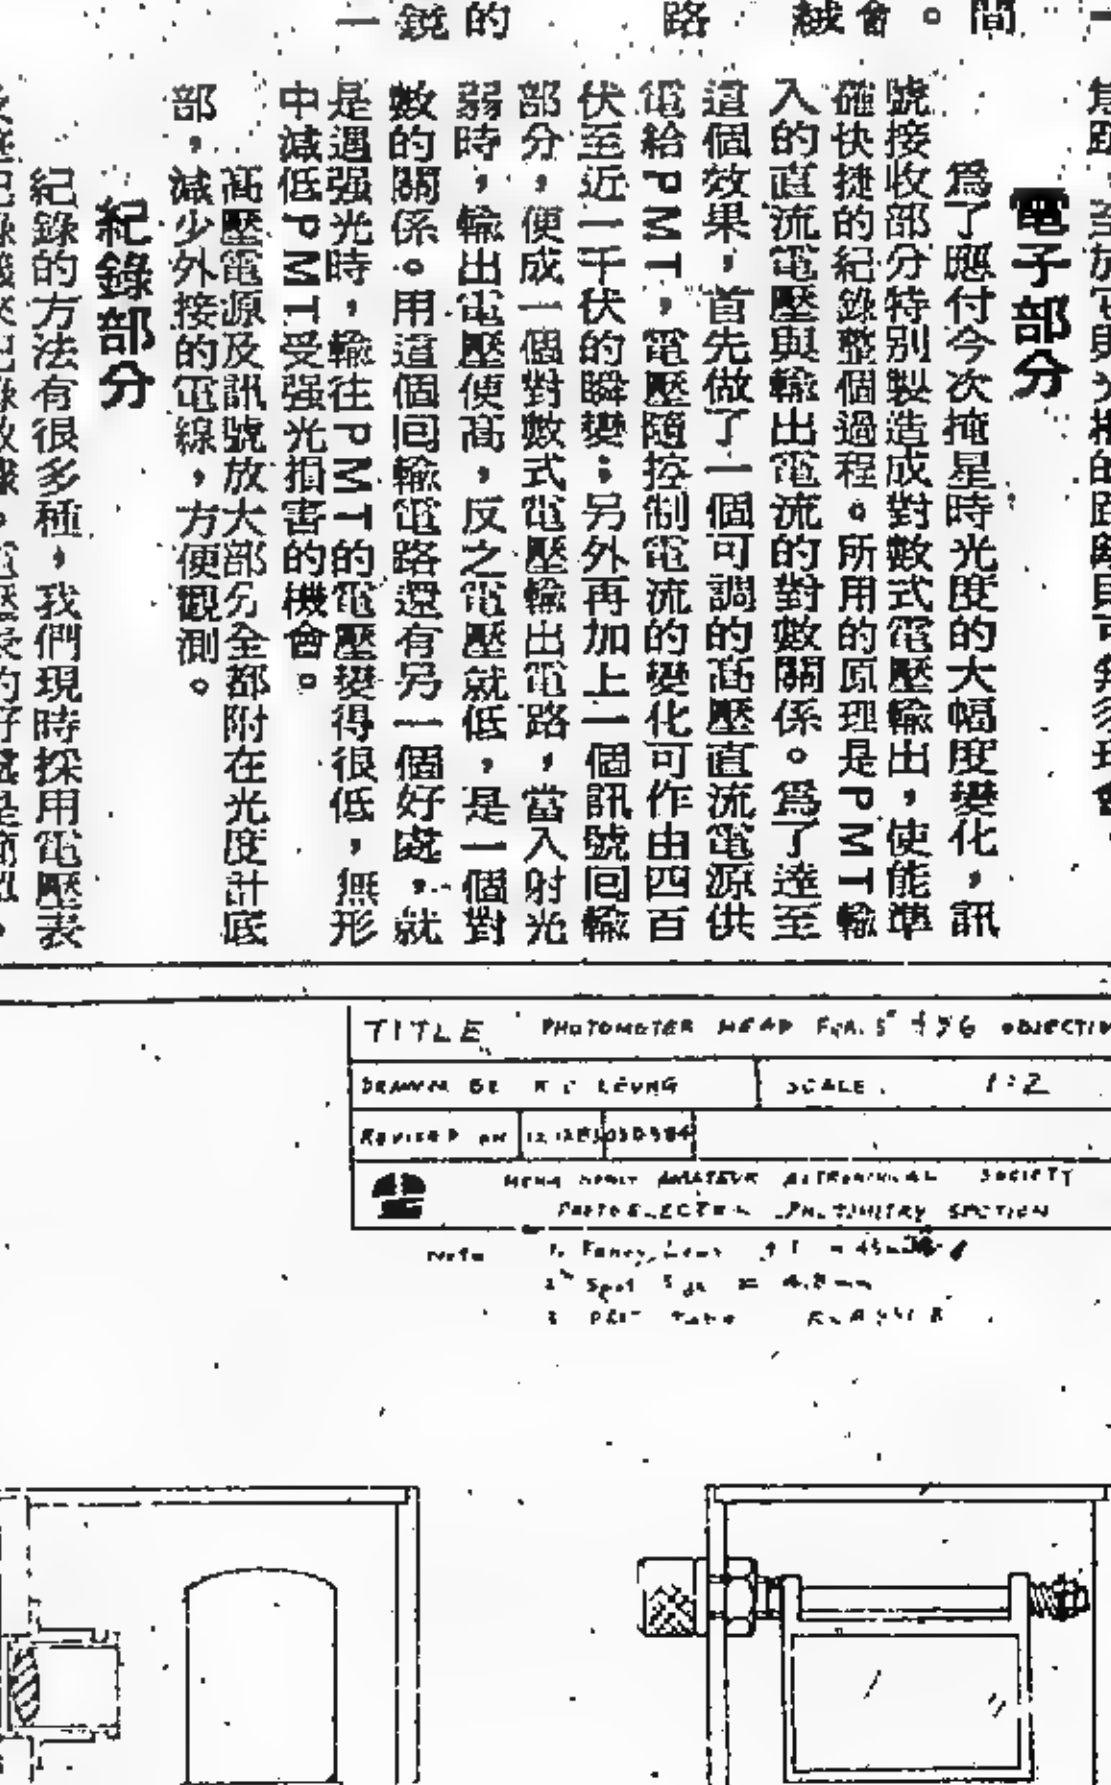 間
。會
絨
路
的
鏡
一
電子部分
爲了應付今次掩星時光度的大幅度變化，訊
號接收部分特別製造成對數式電壓輸出，使能準
確快捷的紀錄整個過程。所用的原理是PMT輸
入的直流電壓與輸出電流的對數關係。爲了達至
這個效果，首先做了一個可調的高壓直流電源供
電給PMT，電壓隨控制電流的變化可作由四百
伏至近一千伏的瞬變；另外再加上一個訊號回輸
部分，便成一個對數式電壓輸出電路，當入射光
弱時，輸出電壓便高，反之電壓就低，是一個對
數的關係。用這個回輸電路還有另一個好處，就
是遇强光時，輸往PMT的電壓變得很低，無形
中減低PMT受强光損害的機會。
高壓電源及訊號放大部分全都附在光度計底
部，減少外接的電線，方便觀測。
紀錄部分
紀錄的方法有很多種，我們現時採用電壓表
TITLE PHOTOMETER HEAD FOR 5" f/6 OBJECTIV
DRAWN BY K C LEUNG SCALE 1:2
REVISED ON
HONG KONG AMATEUR ASTRONOMICAL SOCIETY
PHOTOELECTRIC PHOTOMETRY SECTION
Note
2 Spot = 4.8mm
3 PMT Tube